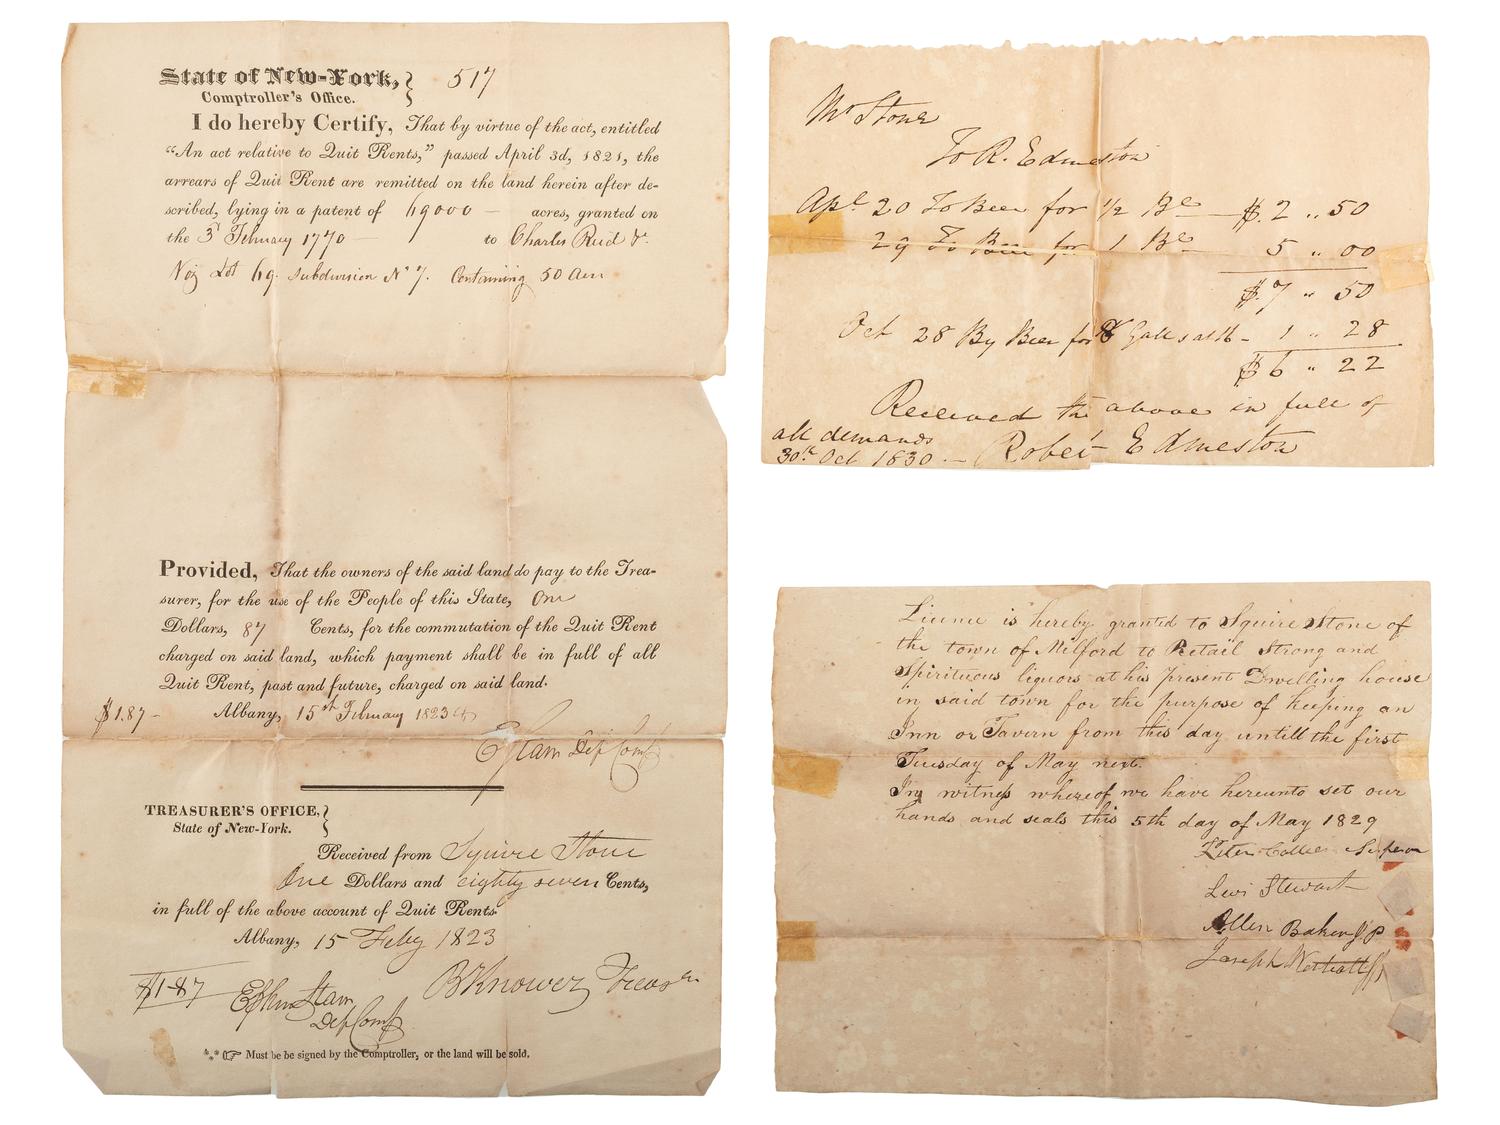 State of New-York,
Comptroller's Office.
517
I do hereby Certify, That by virtue of the act, entitled
“An act relative to Quit Rents,” passed April 3d, 1821, the
arrears of Quit Rent are remitted on the land herein after de-
scribed, lying in a patent of 69000 — acres, granted on
the 3d February 1770 — to Charles Reid &c.
Viz Lot 69. subdivision No 7. Containing 50 Acres
Provided, That the owners of the said land do pay to the Trea-
surer, for the use of the People of this State, One
Dollars, 87 Cents, for the commutation of the Quit Rent
charged on said land, which payment shall be in full of all
Quit Rent, past and future, charged on said land.
$1.87 - Albany, 15th February 1823
Starr Dep Compt
TREASURER'S OFFICE,
State of New-York.
Received from Squire Stone
One Dollars and eighty seven Cents,
in full of the above account of Quit Rents
Albany, 15 Feby 1823
$1-87 Ephm Starr
Dep Compt
B Knower, Treasr
Must be be signed by the Comptroller, or the land will be sold.
Mr Stone
To R. Edmeston
Apl 20 To Beer for 1/2 Bl — $ 2 " 50
29 To Beer for 1 Bl 5 " 00
$ 7 " 50
Oct 28 By Beer for 8 Galls at 1/6 - 1 " 28
$ 6 " 22
Received the above in full of
all demands
30th Oct 1830. — Robert Edmeston
License is hereby granted to Squire Stone of
the town of Milford to Retail Strong and
Spirituous liquors at his present Dwelling house
in said town for the purpose of keeping an
Inn or Tavern from this day untill the first
Tuesday of May next.
In witness whereof we have hereunto set our
hands and seals this 5th day of May 1829
Levi Stewart
Allen Baker JP
Joseph